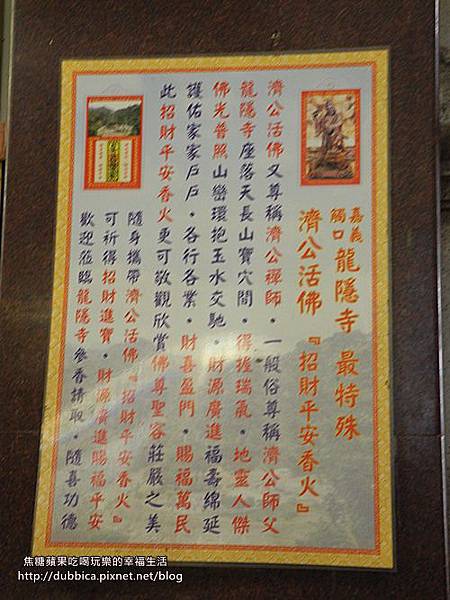 嘉義
觸口
龍隱寺 最特殊
濟公活佛『招財平安香火』
濟公活佛又尊稱濟公禪師・一般俗尊稱濟公師父
龍隱寺座落天長山寶穴間・得握瑞氣・地靈人傑
佛光普照山巒環抱玉水交馳・財源廣進福壽綿延
護佑家家戶戶・各行各業・財喜盈門・賜福萬民
此招財平安香火更可敬觀欣賞佛尊聖容莊嚴之美
隨身攜帶濟公活佛『招財平安香火』
可祈得招財進寶・財源廣進賜福平安
歡迎蒞臨龍隱寺參香請取・隨喜功德
焦糖蘋果吃喝玩樂的幸福生活
http://dubbica.pixnet.net/blog